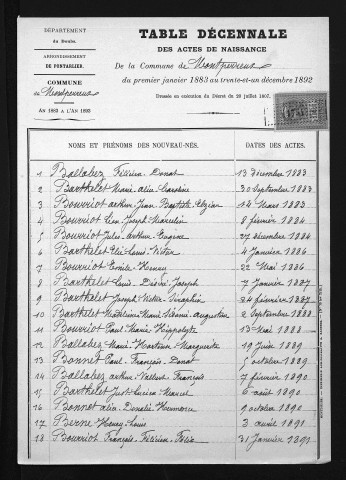 DÉPARTEMENT
du Doubs.
ARRONDISSEMENT
DE PONTARLIER.
COMMUNE
de Montperreux
AN 1883 A L'AN 1892
TABLE DÉCENNALE
DES ACTES DE NAISSANCE
De la Commune de Montperreux
du premier janvier 1883 au trente-et-un décembre 1892
Dressée en exécution du Décret du 20 juillet 1807.
NOMS ET PRÉNOMS DES NOUVEAU-NÉS. DATES DES ACTES.
1 Ballabez Félicien Donat 13 Décembre 1883
2 Barthelet Marie Alix Caroline 30 Septembre 1883
3 Bourriot Arthur Jean Baptiste 14 Mars 1883
4 Bourriot Léon Joseph Marcelin 8 février 1884
5 Bourriot Jules Arthur Eugène 27 décembre 1884
6 Barthelet Elie Louis Victor 4 Janvier 1886
7 Bourriot Emile Henry 22 Mai 1886
8 Barthelet Louis Désiré Joseph 7 Janvier 1887
9 Barthelet Joseph Victor Séraphin 24 février 1887
10 Barthelet Marie Augustine 2 Septembre 1888
11 Bourriot Paul Marie Hippolyte 13 Mai 1888
12 Ballabez Marie Marguerite 19 Juin 1889
13 Bonnet Paul François Donat 5 octobre 1889
14 Ballabez Arthur François 7 février 1890
15 Barthelet Just Lucien Marcel 6 août 1890
16 Bonnet Alix 9 octobre 1890
17 Berne Henry Louis 3 avril 1891
18 Bourriot François Félicien Félix 31 Janvier 1891